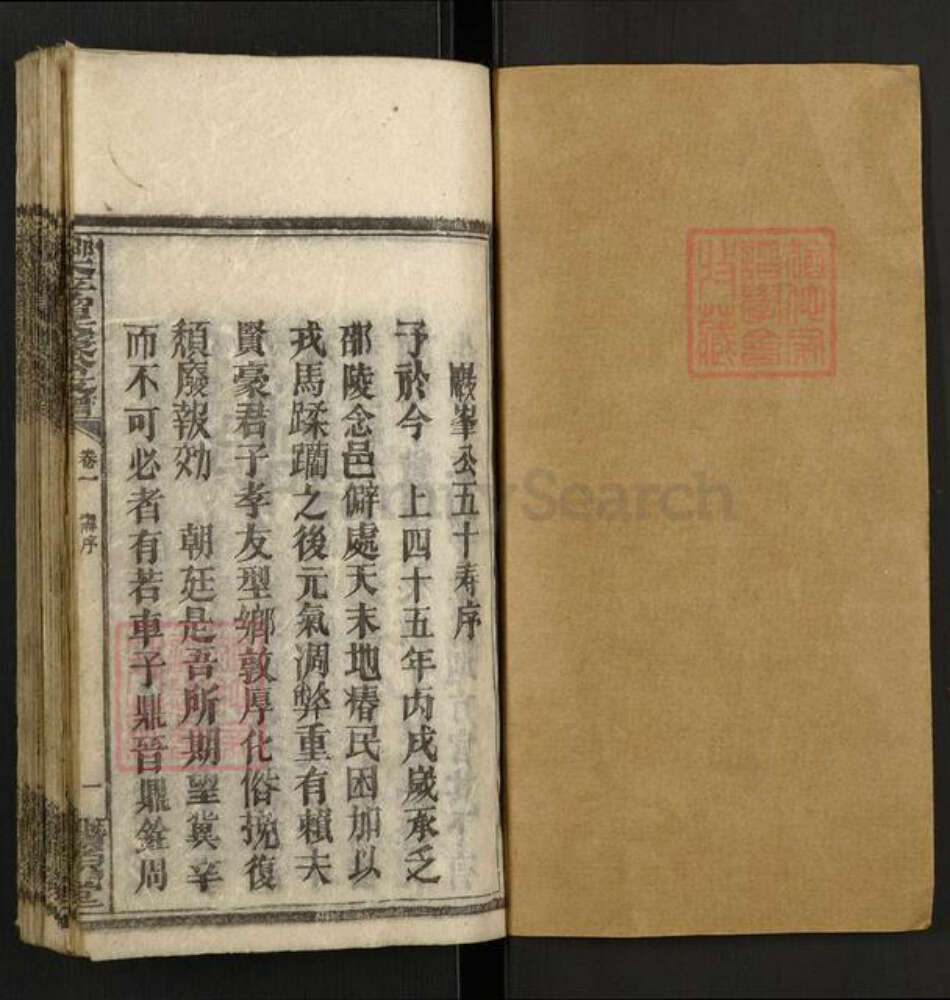 巖峯公五十寿序
予於今　上四十五年丙戌嵗承乏
邵陵念邑僻處天末地瘠民困加以
戎馬蹂躪之後元氣凋弊重有賴夫
賢豪君子孝友型鄉敦厚化俗挽復
頹廢報効　朝廷是吾所期望冀幸
而不可必者有若車子鼎晉鼎銓周
卷一
壽序
一
FamilySearch